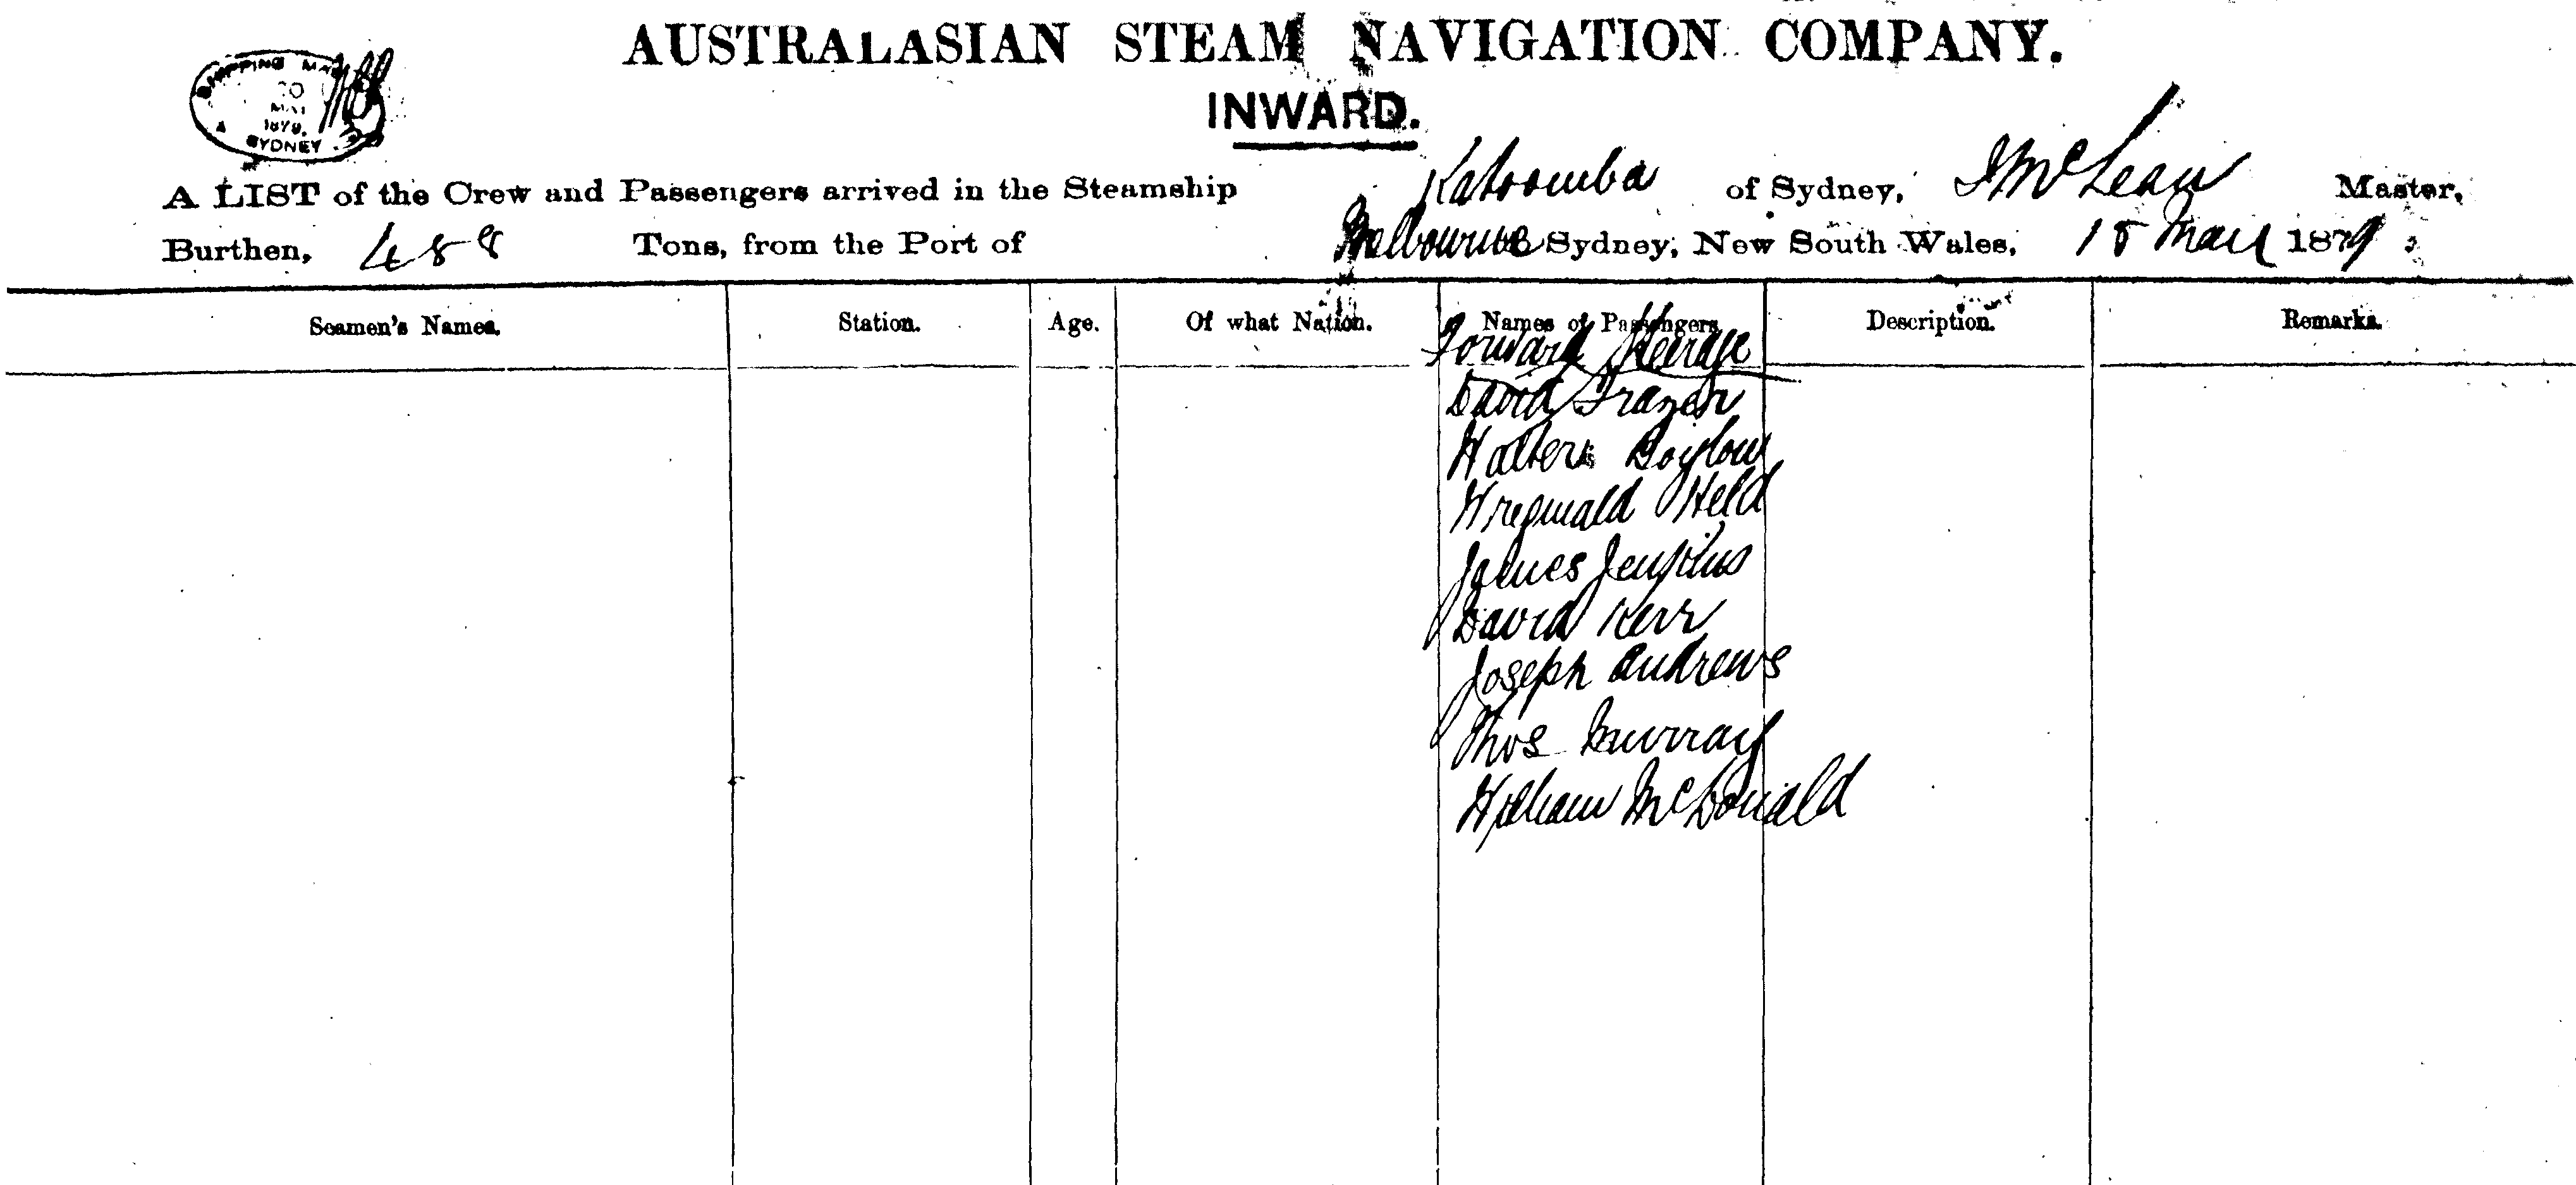 AUSTRALASIAN STEAM NAVIGATION COMPANY.
INWARD.
SHIPPING MAS
20
MAY
1879.
SYDNEY
A LIST of the Crew and Passengers arrived in the Steamship Katoomba of Sydney, McLean Master,
Burthen, 488 Tons, from the Port of Melbourne Sydney, New South Wales, 18 May 1879
Seamen's Names. Station. Age. Of what Nation. Names of Passengers Description. Remarks.
Forward Steerage
David Frazer
Walter
Held
James Jenkins
David Kerr
Joseph Andrews
Thos Murray
William McDonald